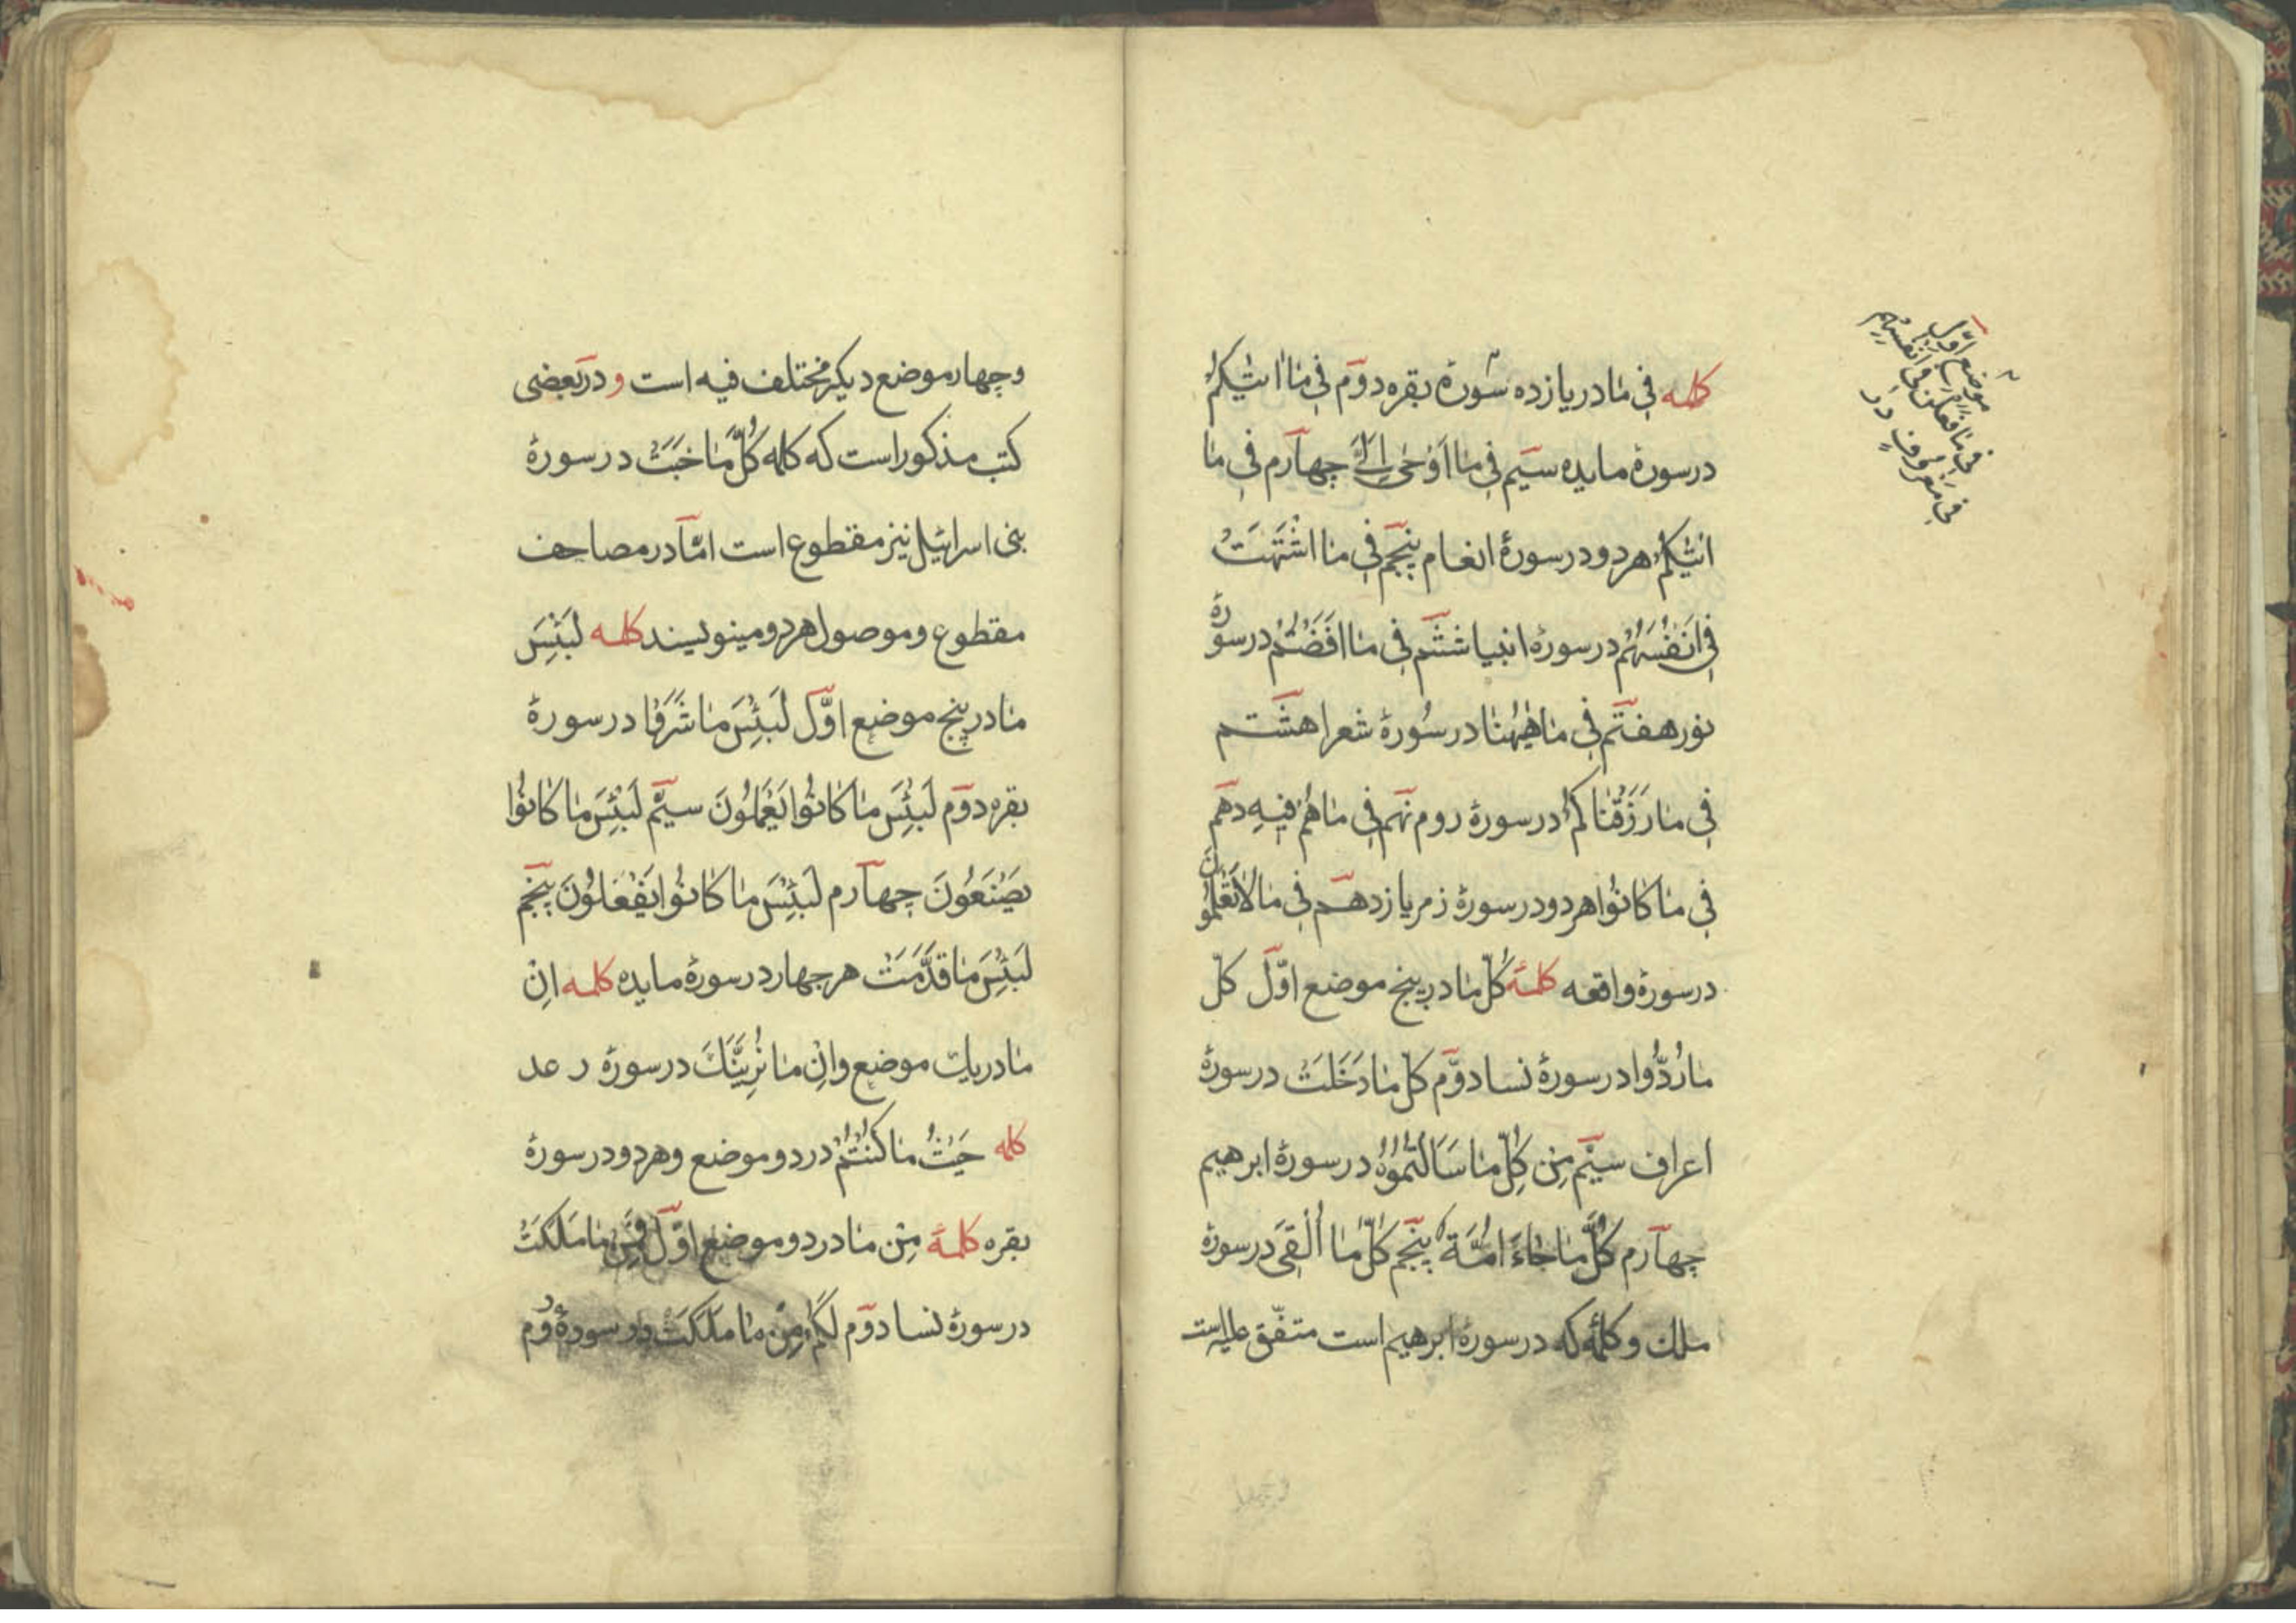 کلمه فِی مٰا در یازده سُورهٔ بقره دوّم فِی مٰا اٰتٰیکُمْ
در سورهٔ مایده سیّم فِی مٰا اُوْحِیَ اِلَیَّ چهارم فِی مٰا
اٰتٰیکُمْ هر دو در سورهٔ انعام پنجم فِی مٰا اشْتَهَتْ
فِی اَنْفُسُهُمْ در سورهٔ انبیا ششم فِی مٰا اَفَضْتُمْ در سورهٔ
نور هفتم فِی مٰا هٰیهُنٰا در سُورهٔ شعرا هشتم
فِی مٰا رَزَقْنٰاکُمْ در سورهٔ روم نهم فِی مٰا هُمْ فِیهِ دهم
فِی مٰا کٰانُوْا هر دو در سورهٔ زمر یازدهم فِی مٰا لٰا تَعْلَمُوْنَ
در سورهٔ واقعه کلمهٔ کُلِّ مٰا در پنج موضع اوّل کلّ
مٰا رُدُّوا در سورهٔ نسا دوّم کلّ مٰا دَخَلَتْ در سورهٔ
اعراف سیّم مِن کُلِّ مٰا سَاَلْتُمُوْهُ در سورهٔ ابرهیم
چهارم کُلَّ مٰا جٰاءَ اُمَّةً پنجم کُلَّ مٰا اُلْقِیَ در سورهٔ
ملک و کلمهٔ که در سورهٔ ابرهیم است متفّق علیه است
موضع اوّل
فِی مٰا فَعَلْنَ فِی اَنْفُسِهِم
فِی مَعْرُوفٍ در
و چهار موضع دیکر مختلف فیه است و در بعضی
کتب مذکور است که کلمه کُلَّ مٰا خَبَتْ در سورهٔ
بنی اسرائیل نیز مقطوع است امّا در مصاحف
مقطوع و موصول هر دو مینویسند کلمه لَبِئْسَ
مٰا در پنج موضع اوّل لَبِئْسَ مٰا شَرَوْا در سورهٔ
بقره دوّم لَبِئْسَ مٰا کٰانُوْا یَعْمَلُوْنَ سیّم لَبِئْسَ مٰا کٰانُوْا
یَصْنَعُوْنَ چهارم لَبِئْسَ مٰا کٰانُوْا یَفْعَلُوْنَ پنجم
لَبِئْسَ مٰا قَدَّمَتْ هر چهار در سورهٔ مایده کلمه اِنْ
مٰا در یک موضع وَاِنْ مٰا نُرِیَنَّکَ در سورهٔ رعد
کلمه حَیْثُ مٰا کُنْتُمْ در دو موضع و هر دو در سورهٔ
بقره کلمهٔ مِنْ مٰا در دو موضع اوّل فَمِنْ مٰا مَلَکَتْ
در سورهٔ نسا دوّم لَکُمْ مِنْ مٰا مَلَکَتْ در سورهٔ روُم